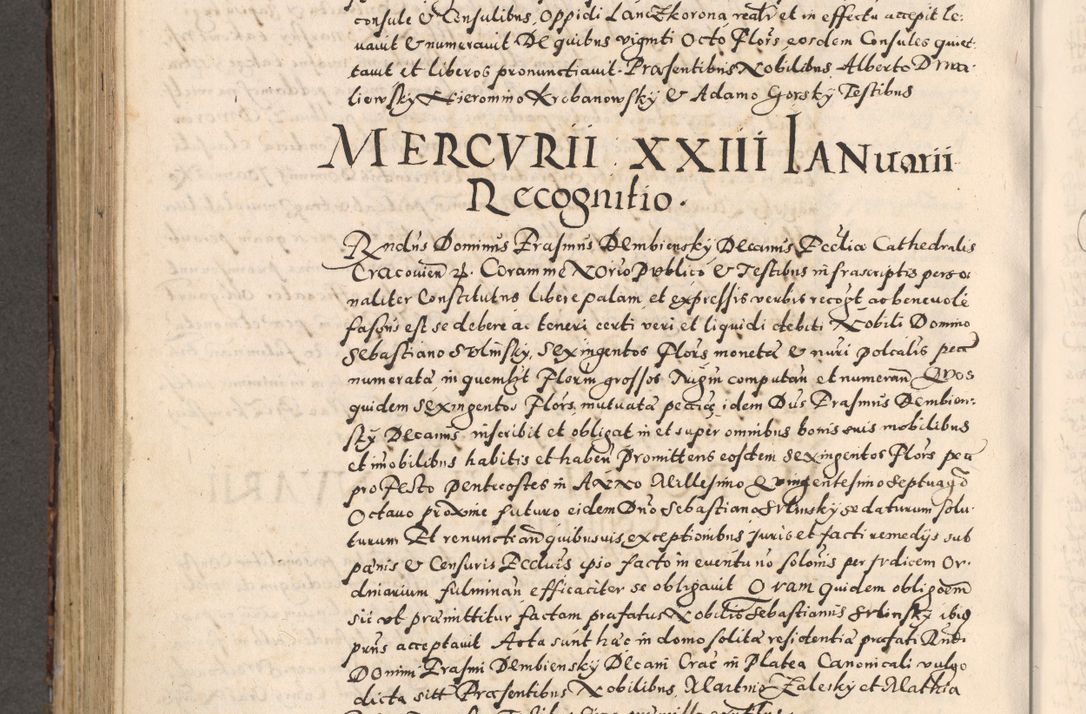 consule & Consulibus, Oppidi Lanczkorona realr et in effectu accepit le:
uauit & numerauit De quibus viginti Octo Flors eosdem Consules quiet:
tauit et liberos pronunctiauit. Præsentibus Nobilibus Alberto Dwa
liewsky Hieronimo Krobanowsky & Adamo Gorsky Testibus
MERCVRII XXIII IANuarii
Recognitio.
Rndus Dominus Erasmus Dembiensky Decanus Eccliæ Cathedralis
Cracouien Coram me Norio Publico & Testibus infrascriptis perso
naliter Constitutus libere palam et expressis verbis recogt ac beneuole
fassus est se debere ac teneri certi veri et liquidi debiti Nobili Domino
Sebastiano Srlinsky, Sexingentos Flors monetæ & nuri polcalis pecæ
numeratæ in quemlgt Florin grossos Trigin computan et numeran Quos
quidem Sexingentos Flors, mutuatæ pecciæ idem Dus Erasmus Dembien:
sky Decanus, inscribit et obligat in et super omnibus bonis suis mobilibus
et imobilibus habitis et haben Promittens eosdem Sexingentos Flors
pro Festo Pentecostes in Anno Millesimo Quingentesimo Septuagō
Octauo proxime futuro eidem Dno Sebastiano Srlinsky se daturum solu:
turum Et renunctean quibusuis exceptionibus Juris et facti remedijs sub
pænis & Censuris Eccluis ipso facto in euentu no soloius per Jrdicem Or:
dinarium fulminan efficaciter se obligauit Quam quidem obligoem
sic vt præmittitur factam præfatus Nobilis Sebastianus Srlinsky ibid
pūus acceptauit Acta sunt hæc in domo solitæ residentiæ præfati Rndi
Domini Erasmi Dembiensky Decani Crac in Platea Canonicali vulgo
dicta sitt Præsentibus Nobilibus Martino Zalesky et Mathia